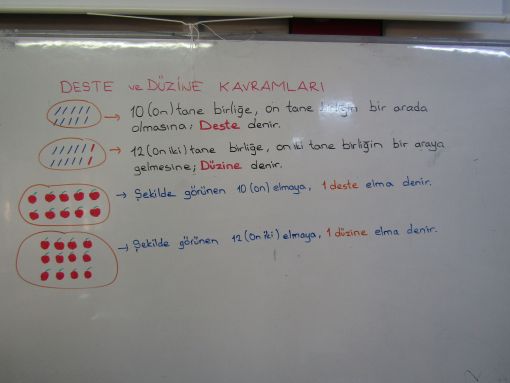 DESTE ve DÜZİNE KAVRAMLARI
10 (on) tane birliğe, on tane birliğin bir arada
olmasına; Deste denir.
12 (on iki) tane birliğe, on iki tane birliğin bir araya
gelmesine; Düzine denir.
Şekilde görünen 10 (on) elmaya, 1 deste elma denir.
Şekilde görünen 12 (On iki) elmaya, 1 düzine elma denir.